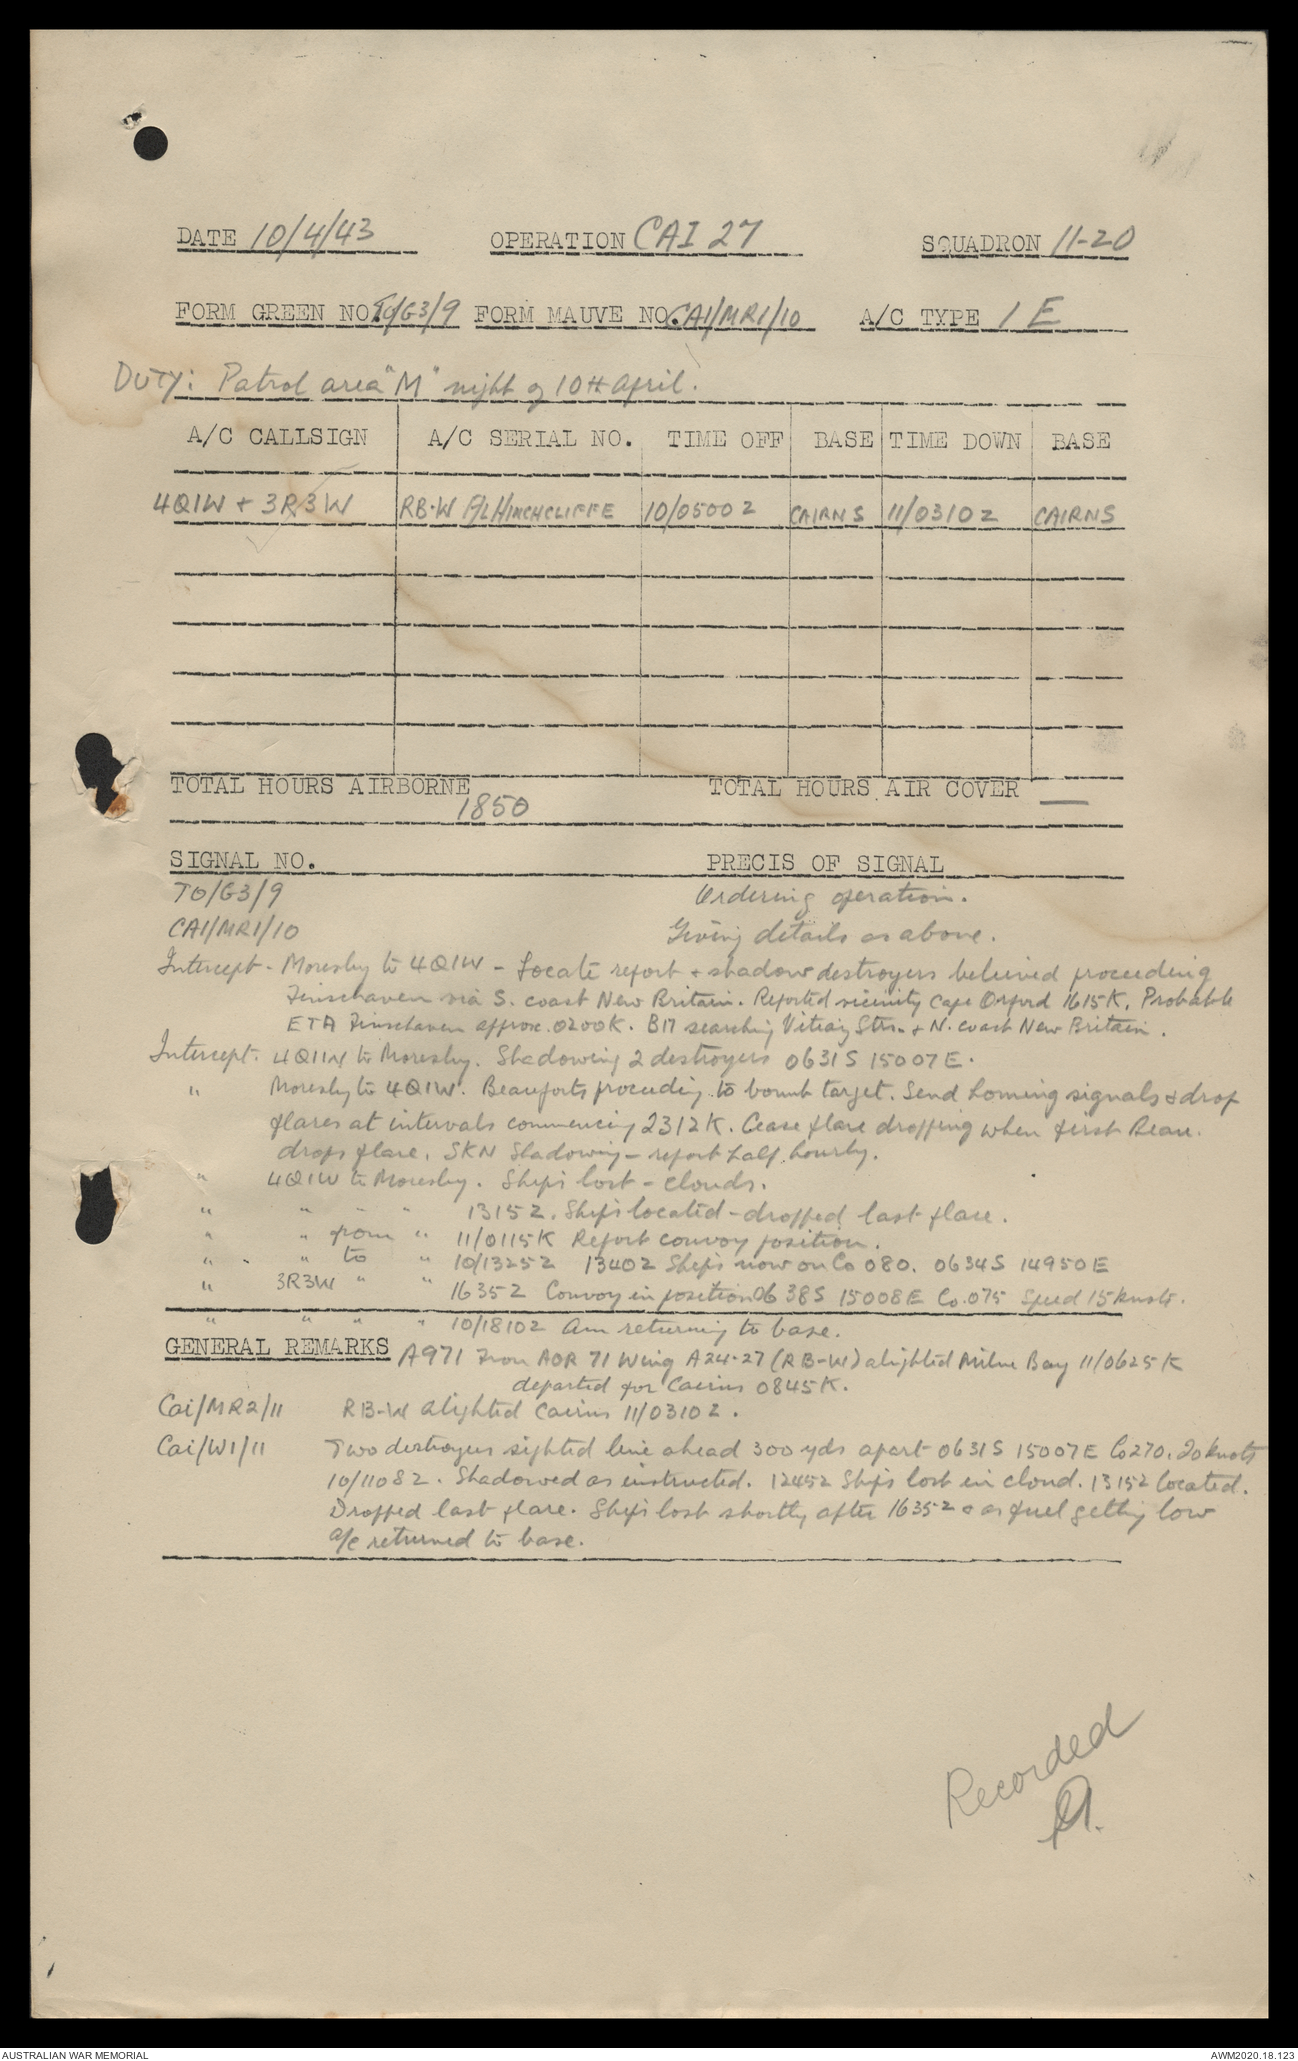 DATE 10/4/43 OPERATION CAI 27 SQUADRON 11-20
FORM GREEN NO. TO/G3/9 FORM MAUVE NO. CAI/MR1/10 A/C TYPE 1 E
DUTY: Patrol area "M" night of 10th April.
A/C CALLSIGN A/C SERIAL NO. TIME OFF BASE TIME DOWN BASE
4Q1W + 3R3W RB-W F/L HINCHCLIFFE 10/0500Z CAIRNS 11/0310Z CAIRNS
TOTAL HOURS AIRBORNE 1850 TOTAL HOURS AIR COVER —
SIGNAL NO. PRECIS OF SIGNAL
TO/G3/9 Ordering operation.
CAI/MR1/10 Giving details as above.
Intercept - Moresby to 4Q1W - Locate report + shadow destroyers believed proceeding
Finschaven via S. coast New Britain. Reported vicinity Cape Orford 1615K. Probable
ETA Finschaven approx. 0200K. B17 searching Vitiaz Strs. + N. coast New Britain.
Intercept. 4Q1W to Moresby. Shadowing 2 destroyers 0631S 15007E.
" Moresby to 4Q1W. Beauforts proceeding to bomb target. Send homing signals & drop
flares at intervals commencing 2312K. Cease flare dropping when first Beau.
drops flare. SKN Shadowing - report half hourly.
" 4Q1W to Moresby. Ships lost - clouds.
" " " " 1315Z. Ships located - dropped last flare.
" " from " 11/0115K Report convoy position.
" " to " 10/1325Z 1340Z Ships now on Co 080. 0634S 14950E
" 3R3W " " 1635Z Convoy in position 0638S 15008E Co. 075 Speed 15 knots.
" " " " 10/1810Z Am returning to base.
GENERAL REMARKS A971 From AOR 71 Wing A24-27 (RB-W) alighted Milne Bay 11/0625K
departed for Cairns 0845K.
Cai/MR2/11 RB-W alighted Cairns 11/0310Z.
Cai/W1/11 Two destroyers sighted line ahead 300 yds apart 0631S 15007E Co 270. 20 knots
10/1108Z. Shadowed as instructed. 1245Z Ships lost in cloud. 1315Z located.
Dropped last flare. Ships lost shortly after 1635Z & as fuel getting low
a/c returned to base.
Recorded
AUSTRALIAN WAR MEMORIAL AWM2020.18.123